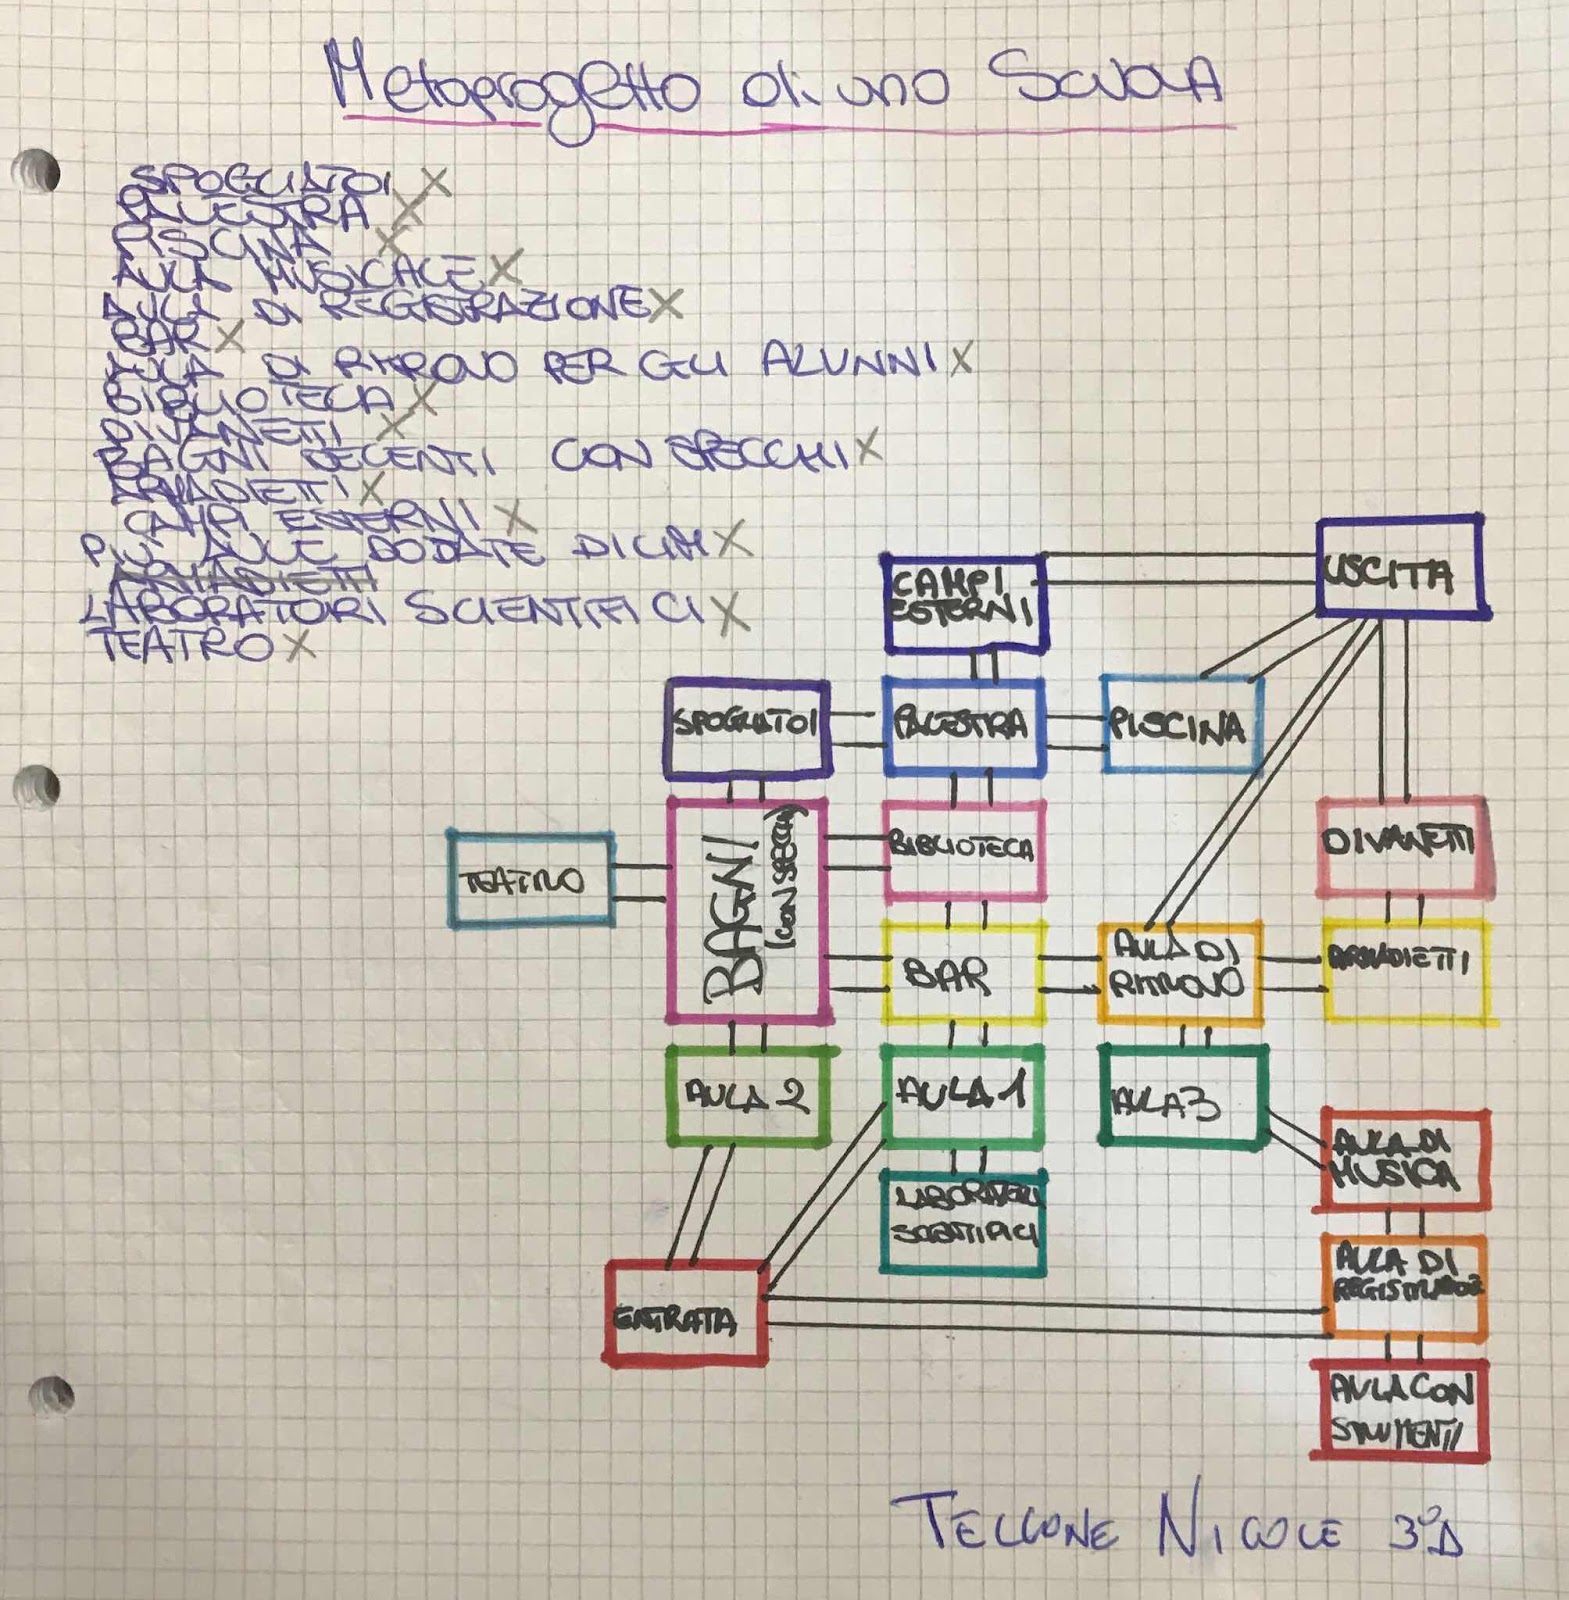 Metaprogetto di una Scuola
SPOGLIATOI X
PALESTRA X
PISCINA X
AULA MUSICALE X
AULA DI REGISTRAZIONE X
BAR X
AULA DI RITROVO PER GLI ALUNNI X
BIBLIOTECA X
DIVANETTI X
BAGNI DECENTI CON SPECCHI X
ARMADIETTI X
CAMPI ESTERNI X
PIÙ AULE DODATE DI LIM X
ARMADIETTI
LABORATORI SCIENTIFICI X
TEATRO X
USCITA
CAMPI
ESTERNI
SPOGLIATOI
PALESTRA
PISCINA
TEATRO
BAGNI
(CON SPECCHI)
BIBLIOTECA
DIVANETTI
BAR
AULA DI
RITROVO
ARMADIETTI
AULA 2
AULA 1
AULA 3
AULA DI
MUSICA
LABORATORI
SCIENTIFICI
AULA DI
ENTRATA
AULA CON
STRUMENTI
TELLONE NICOLE 3°D